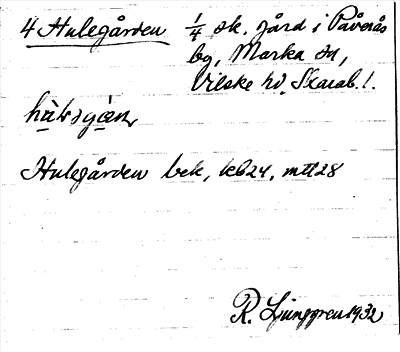 4 Hulegården 1/4 sk. gård i Påverås
by, Marka sn,
Vilske hd. Skarab. l.
Hulegården bek, kb24, mtl28
R. Ljunggren 1932